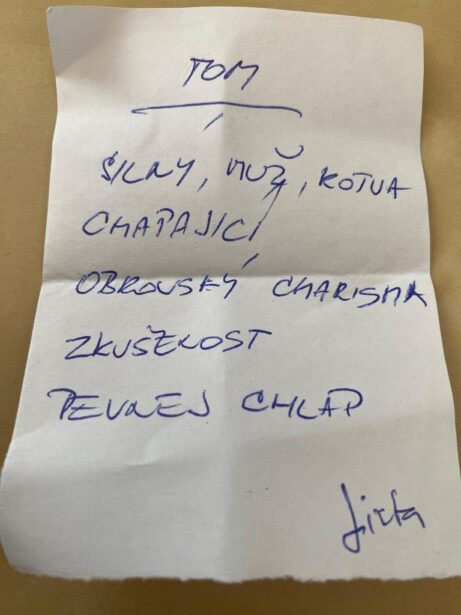 TOM
SILNÝ, MUŽ, KOTVA
CHÁPAJÍCÍ
OBROVSKÝ CHARISMA
ZKUŠENOST
PEVNEJ CHLAP
Jirka